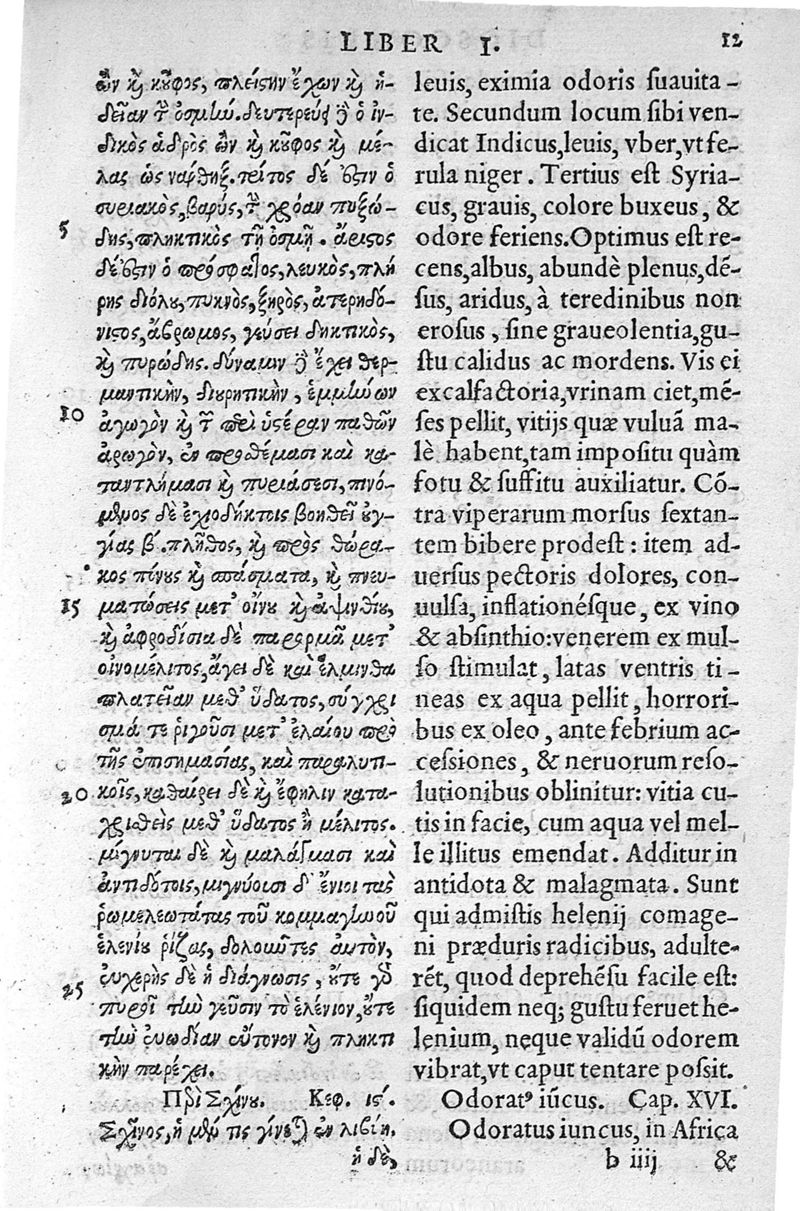 LIBER I. 12
ὢν καὶ κοῦφος, πλείστην ἔχων καὶ ἡ-
δεῖαν τὴν ὀσμήν. δευτερεύει δὲ ὁ ἰν-
δικὸς ἁδρὸς ὢν καὶ κοῦφος καὶ μέ-
λας ὡς νάρθηξ. τρίτος δέ ἐστιν ὁ
συριακὸς, βαρὺς, τὴν χρόαν πυξώ-
5
δης, πληκτικὸς τῇ ὀσμῇ. ἄριστος
δέ ἐστιν ὁ πρόσφατος, λευκὸς, πλή
ρης διόλου, πυκνὸς, ξηρὸς, ἀτερηδό-
νιστος, ἄβρωμος, γεύσει δηκτικὸς,
καὶ πυρώδης. δύναμιν δὲ ἔχει θερ-
μαντικὴν, διουρητικὴν, ἐμμήνων
10 ἀγωγὸν καὶ τῶν περὶ ὑστέραν παθῶν
ἀρωγὸν, ἐν προσθέμασι καὶ κα-
ταντλήμασι καὶ πυριάσεσι, πινό-
μενος δὲ ἐχιοδήκτοις βοηθεῖ οὐγ-
γίας β΄. πλῆθος, καὶ πρὸς θώρα-
κος πόνους καὶ σπάσματα, καὶ πνευ-
15 ματώσεις μετ' οἴνου καὶ ἀψινθίου,
καὶ ἀφροδίσια δὲ παρορμᾷ μετ'
οἰνομέλιτος, ἄγει δὲ καὶ ἕλμινθα
πλατεῖαν μεθ' ὕδατος, σύγχρι
σμά τε ῥιγοῦσι μετ' ἐλαίου πρὸ
τῆς ἐπισημασίας, καὶ παραλυτι-
20 κοῖς, καθαίρει δὲ καὶ ἔφηλιν κατα-
χρισθεὶς μεθ' ὕδατος ἢ μέλιτος.
μίγνυται δὲ καὶ μαλάγμασι καὶ
ἀντιδότοις, μιγνύουσι δ' ἔνιοι τὰς
ῥωμελεωτάτας τοῦ κομμαγηνοῦ
ἑλενίου ῥίζας, δολοῦντες αὐτὸν,
εὐχερὴς δὲ ἡ διάγνωσις, οὔτε γὰρ
25 πυροῖ τὴν γεῦσιν τὸ ἑλένιον, οὔτε
τὴν εὐωδίαν εὔτονον καὶ πληκτι
κὴν παρέχει.
Περὶ Σχίνου. Κεφ. ις΄.
Σχῖνος, ἡ μέν τις γίνεται ἐν λιβύῃ,
ἡ δὲ,
leuis, eximia odoris suauita-
te. Secundum locum sibi ven-
dicat Indicus, leuis, vber, vt fe-
rula niger. Tertius est Syria-
cus, grauis, colore buxeus, &
odore feriens. Optimus est re-
cens, albus, abundè plenus, dē-
sus, aridus, à teredinibus non
erosus, sine graueolentia, gu-
stu calidus ac mordens. Vis ei
excalfactoria, vrinam ciet, mē-
ses pellit, vitijs quæ vuluā ma-
lè habent, tam impositu quàm
fotu & suffitu auxiliatur. Cō-
tra viperarum morsus sextan-
tem bibere prodest: item ad-
uersus pectoris dolores, con-
uulsa, inflationésque, ex vino
& absinthio: venerem ex mul-
so stimulat, latas ventris ti-
neas ex aqua pellit, horrori-
bus ex oleo, ante febrium ac-
cessiones, & neruorum reso-
lutionibus oblinitur: vitia cu-
tis in facie, cum aqua vel mel-
le illitus emendat. Additur in
antidota & malagmata. Sunt
qui admistis helenij comage-
ni præduris radicibus, adulte-
rēt, quod deprehēsu facile est:
siquidem neq; gustu feruet he-
lenium, neque validū odorem
vibrat, vt caput tentare possit.
Odoratꝰ iūcus. Cap. XVI.
Odoratus iuncus, in Africa
b iiij &